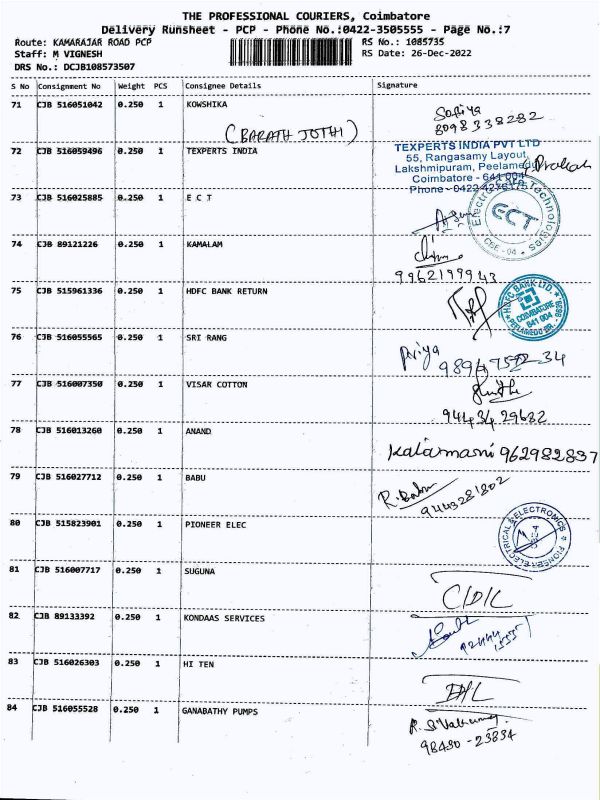 THE PROFESSIONAL COURIERS, Coimbatore
Delivery Runsheet - PCP - Phone No.:0422-3505555 - Page No.:7
Route: KAMARAJAR ROAD PCP
RS No.: 1085735
Staff: M VIGNESH
RS Date: 26-Dec-2022
DRS No.: DCJB108573507
S No Consignment No Weight PCS Consignee Details Signature
71 CJB 516051042 0.250 1 KOWSHIKA
8098338282
(BARATH JOTHI)
72 CJB 516059496 0.250 1 TEXPERTS INDIA
TEXPERTS INDIA PVT LTD
55, Rangasamy Layout,
Lakshmipuram, Peelamedu
Coimbatore - 641 004
Phone - 0422
73 CJB 516025885 0.250 1 E C T
Electro Technologies
ECT
CBE-04
74 CJB 89121226 0.250 1 KAMALAM
9962199943
75 CJB 515961336 0.250 1 HDFC BANK RETURN
HDFC BANK LTD.
COIMBATORE
641 004
76 CJB 516055565 0.250 1 SRI RANG
Priya
77 CJB 516007350 0.250 1 VISAR COTTON
94434 29632
78 CJB 516013260 0.250 1 ANAND
Kalaimani 962982837
79 CJB 516027712 0.250 1 BABU
R. Babu
9443281802
80 CJB 515823901 0.250 1 PIONEER ELEC
PIONEER ELECTRICAL & ELECTRONICS
81 CJB 516007717 0.250 1 SUGUNA
82 CJB 89133392 0.250 1 KONDAAS SERVICES
83 CJB 516026303 0.250 1 HI TEN
84 CJB 516055528 0.250 1 GANABATHY PUMPS
98430-23834